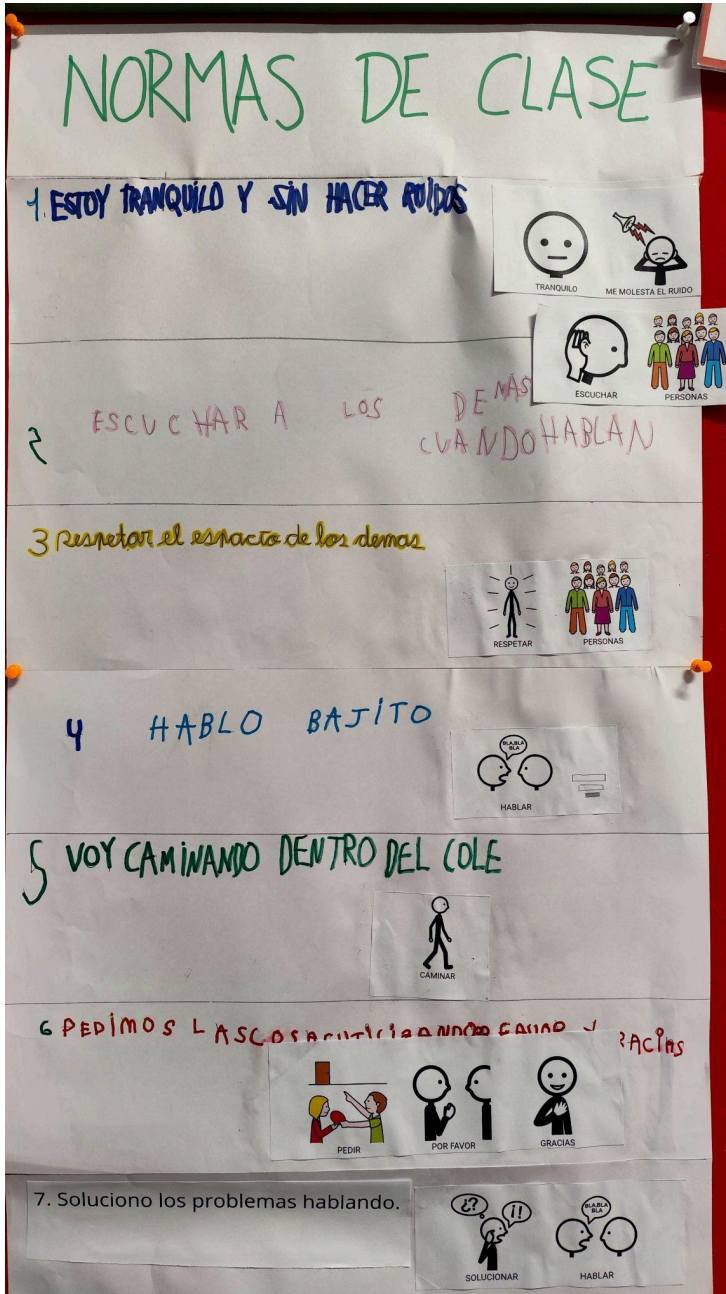 NORMAS DE CLASE
1. ESTOY TRANQUILO Y SIN HACER RUIDOS
TRANQUILO ME MOLESTA EL RUIDO
ESCUCHAR PERSONAS
2 ESCUCHAR A LOS DEMAS
CUANDO HABLAN
3 Respetar el espacio de los demas
RESPETAR PERSONAS
4 HABLO BAJITO
BLA,BLA
BLA
HABLAR
5 VOY CAMINANDO DENTRO DEL COLE
CAMINAR
6 PEDIMOS LAS
PEDIR POR FAVOR GRACIAS
7. Soluciono los problemas hablando.
¿? ¡!
BLA,BLA
BLA
SOLUCIONAR HABLAR